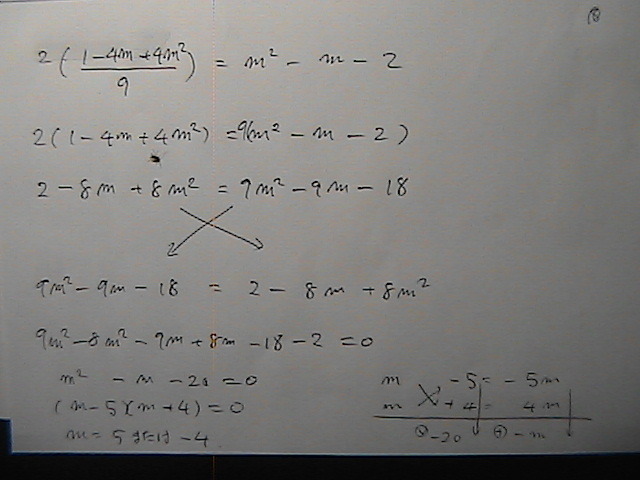 ⑧
2 ( (1-4m+4m²)/9 ) = m² - m - 2
2(1-4m+4m²) = 9(m² - m - 2)
2 - 8m + 8m² = 9m² - 9m - 18
9m² - 9m - 18 = 2 - 8m + 8m²
9m² - 8m² - 9m + 8m - 18 - 2 = 0
m² - m - 20 = 0
(m-5)(m+4) = 0
m = 5 หรือ -4
m -5 = -5m
m +4 = 4m
⊗ -20 ⊕ -m